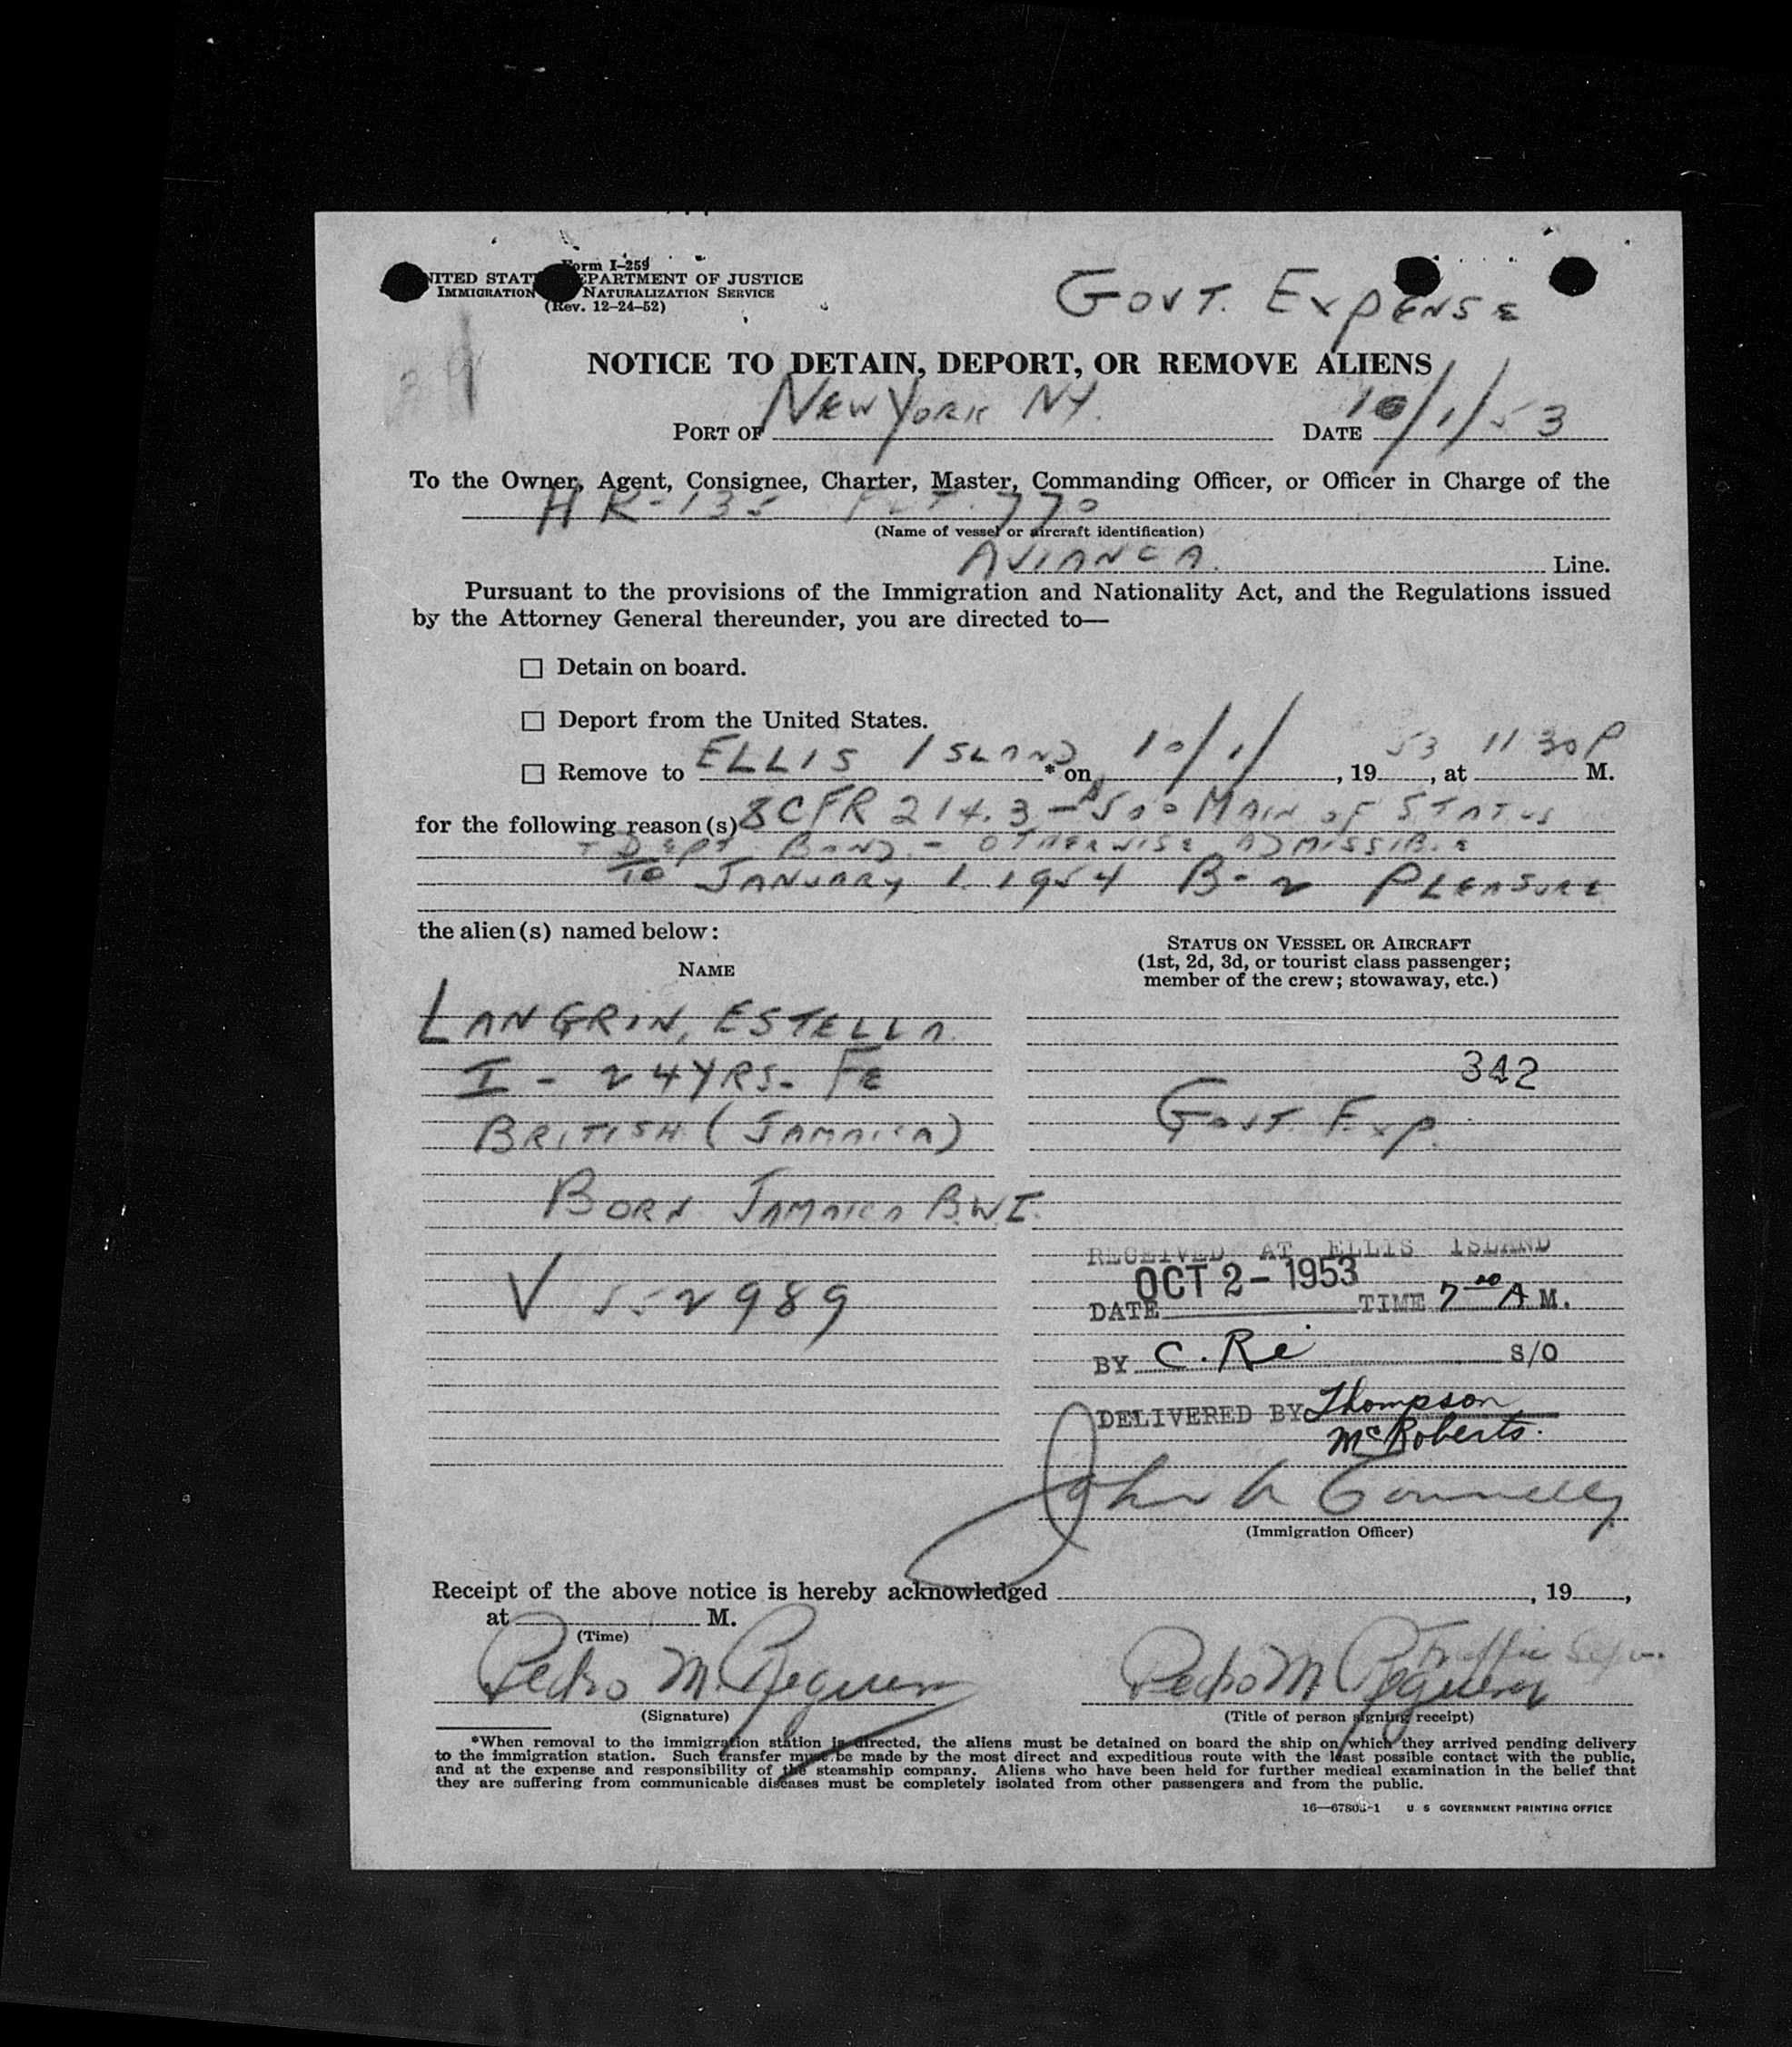 Form I-259
UNITED STATES DEPARTMENT OF JUSTICE
IMMIGRATION NATURALIZATION SERVICE
(Rev. 12-24-52)
GOVT. EXPENSE
NOTICE TO DETAIN, DEPORT, OR REMOVE ALIENS
PORT OF NEW YORK NY. DATE 10/1/53
To the Owner, Agent, Consignee, Charter, Master, Commanding Officer, or Officer in Charge of the
HK-135 FLT. 770
(Name of vessel or aircraft identification)
AVIANCA. Line.
Pursuant to the provisions of the Immigration and Nationality Act, and the Regulations issued
by the Attorney General thereunder, you are directed to—
☐ Detain on board.
☐ Deport from the United States.
☐ Remove to ELLIS ISLAND * on 10/1/, 1953, at 11 30 P M.
for the following reason(s) 8 CFR 214.3 - $500 MAIN OF STATUS
+ DEPT. BOND. - OTHERWISE ADMISSIBLE
TO JANUARY 1, 1954 B-2 PLEASURE
the alien(s) named below:
NAME
STATUS ON VESSEL OR AIRCRAFT
(1st, 2d, 3d, or tourist class passenger;
member of the crew; stowaway, etc.)
LANGRIN, ESTELLA.
I - 24 YRS - FE
342
BRITISH (JAMAICA)
GOVT. EXP.
BORN JAMAICA B.W.I.
V 552989
RECEIVED AT ELLIS ISLAND
DATE OCT 2 - 1953 TIME 7 00 A M.
BY C. Re S/O
DELIVERED BY Thompson
McRoberts.
John Connelly
(Immigration Officer)
Receipt of the above notice is hereby acknowledged , 19 ,
at M.
(Time)
Traffic
Pedro M. Pedro M
(Signature) (Title of person signing receipt)
*When removal to the immigration station is directed, the aliens must be detained on board the ship on which they arrived pending delivery
to the immigration station. Such transfer must be made by the most direct and expeditious route with the least possible contact with the public,
and at the expense and responsibility of the steamship company. Aliens who have been held for further medical examination in the belief that
they are suffering from communicable diseases must be completely isolated from other passengers and from the public.
16—67803-1 U S GOVERNMENT PRINTING OFFICE